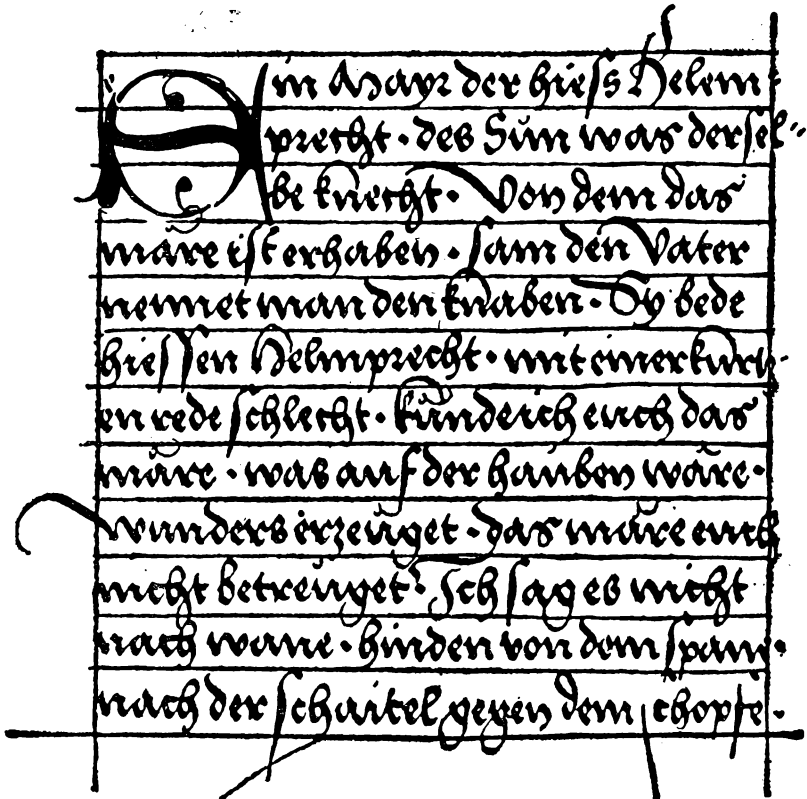 Ein Mayr der hiess Helem-
precht · des Sun was dersel-
be knecht · Von dem das
märe ist erhaben · sam den Vater
nennet man den knaben · Sy bede
hiessen Helmprecht · mit einer kurtz-
en rede schlecht · künde ich euch das
märe · was auf der hauben wäre ·
wunders erzeuget · das märe euch
nicht betreuget · Ich sag es nicht
nach wane · hinden von dem span ·
nach der schaitel gegen dem schopfe ·